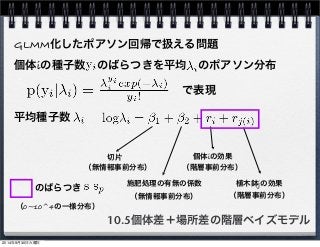 GLMM化したポアソン回帰で扱える問題
個体iの種子数yᵢのばらつきを平均λᵢのポアソン分布
p(yᵢ|λᵢ) = λᵢ^yᵢ exp(-λᵢ) / yᵢ! で表現
平均種子数 λᵢ logλᵢ = β₁ + β₂ + rᵢ + r_j(i)
切片 個体iの効果
(無情報事前分布) (階層事前分布)
のばらつき s sₚ 施肥処理の有無の係数 植木鉢jの効果
(無情報事前分布) (階層事前分布)
(0~10^4の一様分布)
10.5個体差+場所差の階層ベイズモデル